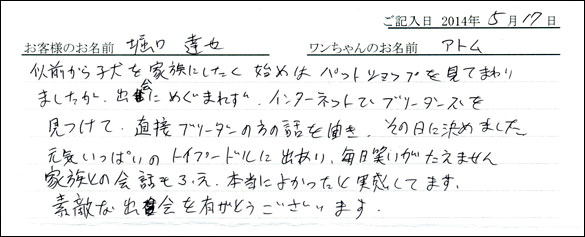 ご記入日 2014年 5月17日
お客様のお名前 堀口 達也 ワンちゃんのお名前 アトム
以前から子犬を家族にしたく始めはペットショップを見てまわり
ましたが、出会にめぐまれず、インターネットでブリーダーズを
見つけて、直接ブリーダーの方の話を聞き、その日に決めました
元気いっぱいのトイプードルに出あり、毎日笑いがたえません
家族との会話もふえ、本当によかったと実感してます。
素敵な出会を有がとうございます。